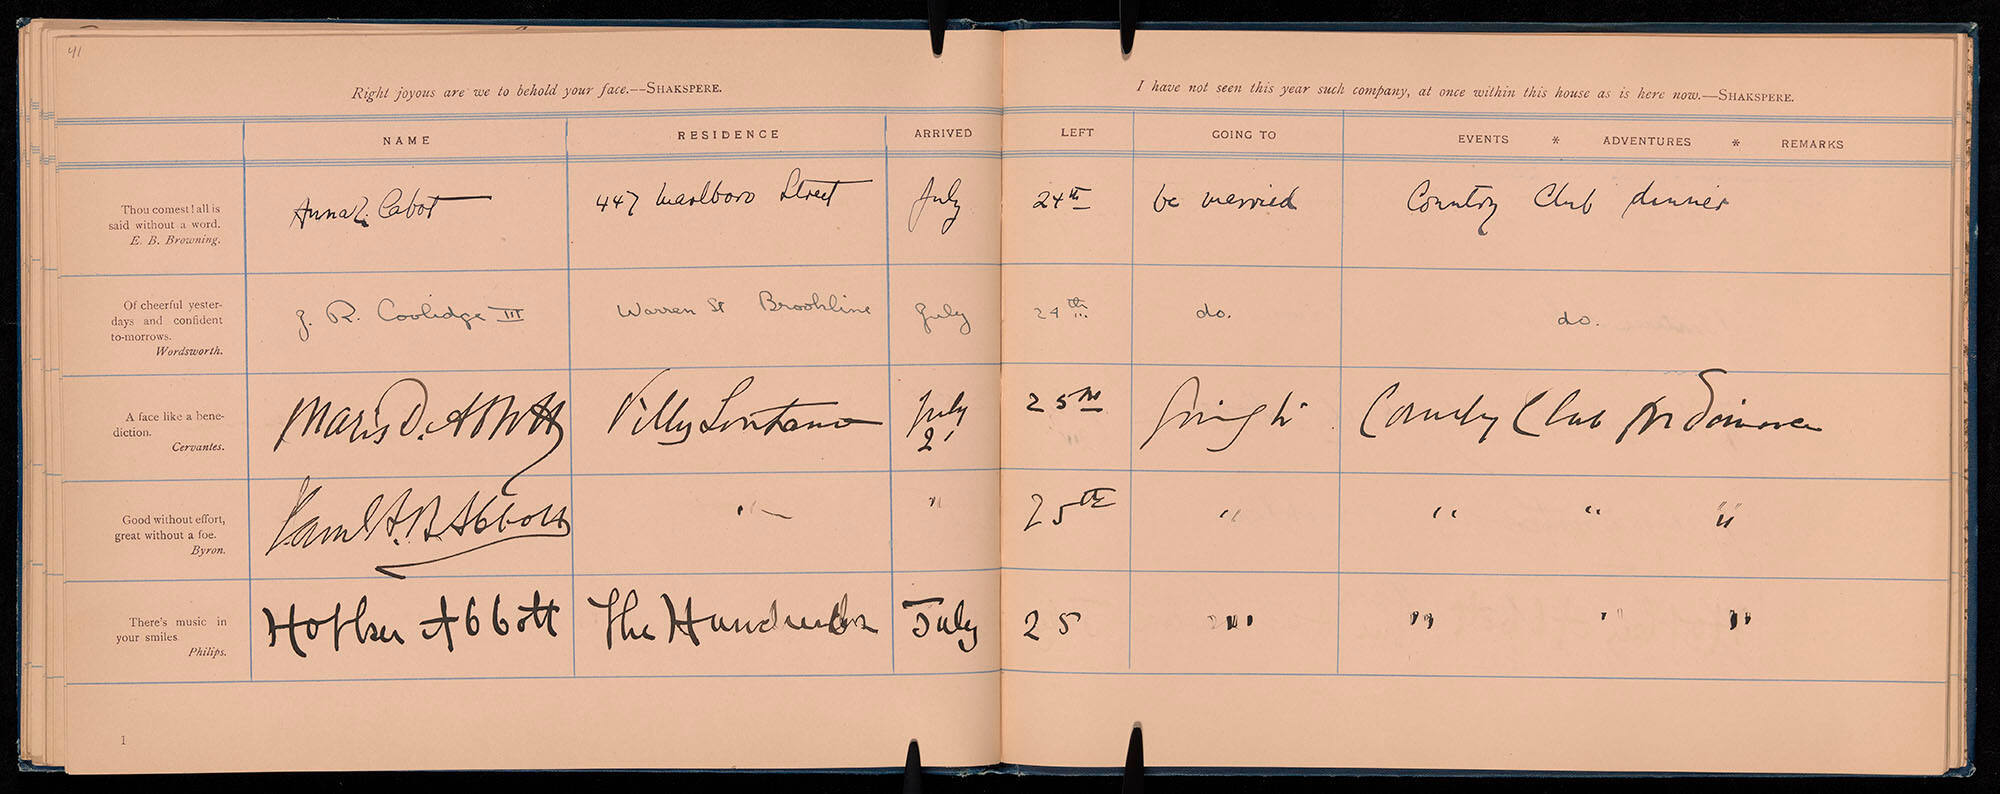 41
Right joyous are we to behold your face.—SHAKSPERE.
I have not seen this year such company, at once within this house as is here now.—SHAKSPERE.
NAME RESIDENCE ARRIVED LEFT GOING TO EVENTS * ADVENTURES * REMARKS
Thou comest! all is
said without a word.
E. B. Browning.
Anna L. Cabot 447 Marlboro Street July 24th be married Country Club dinner
Of cheerful yester-
days and confident
to-morrows.
Wordsworth.
J. R. Coolidge III Warren St Brookline July 24th do. do.
A face like a bene-
diction.
Cervantes.
July 25th Country Club
2
Good without effort,
great without a foe.
Byron.
Abbott " " 25th " " " "
There's music in
your smiles.
Philips.
Abbott The July 25 " " " "
1